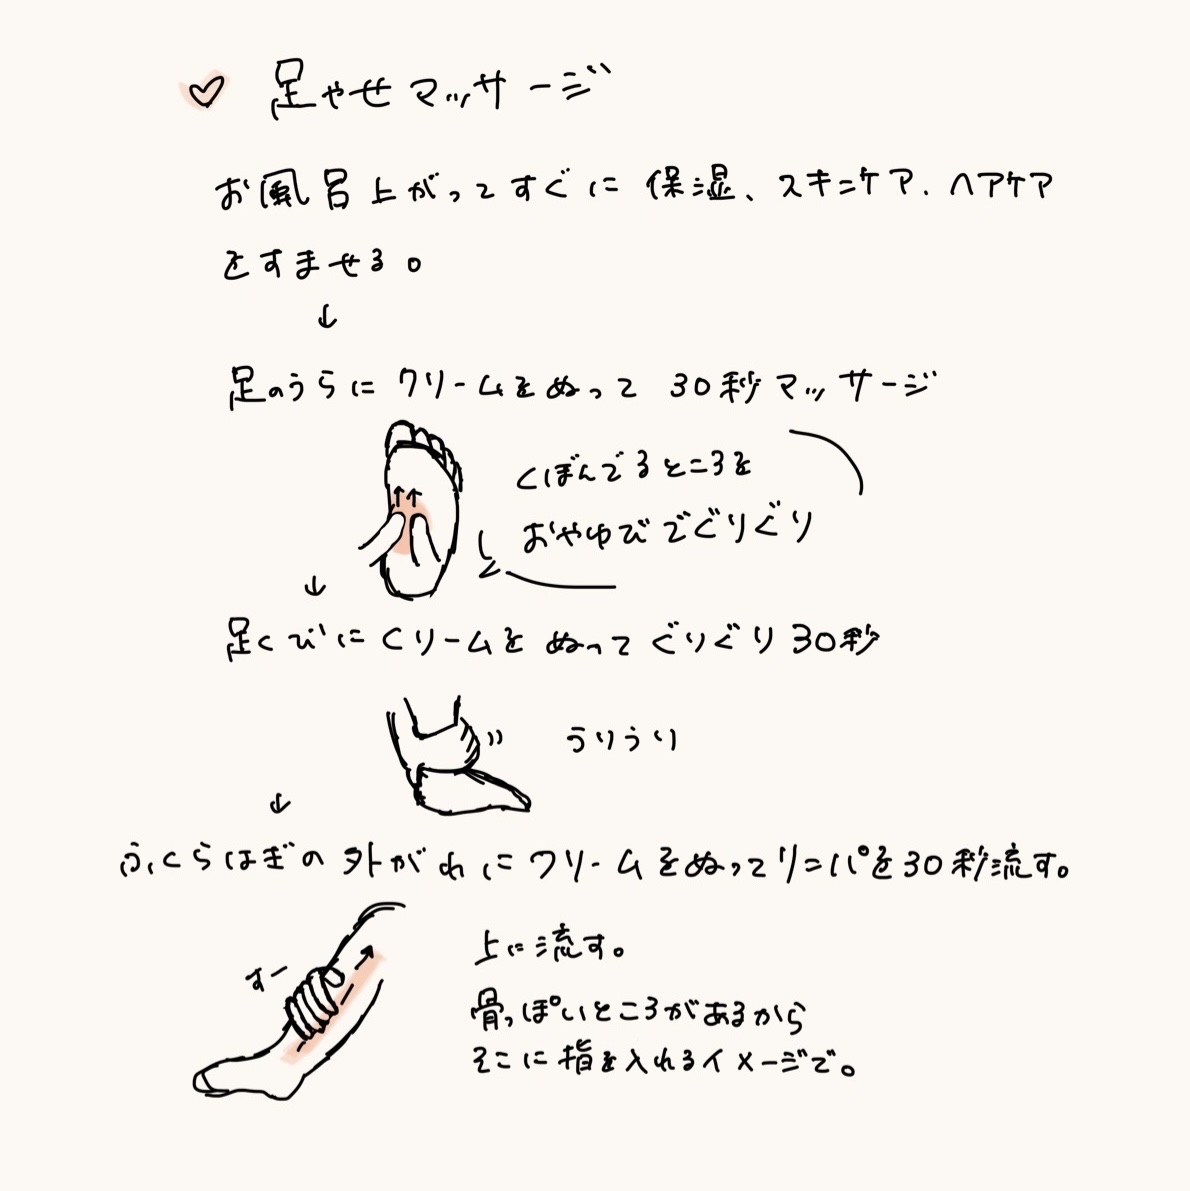 ♡ 足やせマッサージ
お風呂上がってすぐに保湿、スキンケア、ヘアケア
をすませる。
↓
足のうらにクリームをぬって 30秒マッサージ
くぼんでるところを
おやゆびでぐりぐり
↓
足くびにクリームをぬってぐりぐり30秒
うりうり
↓
ふくらはぎの外がわにクリームをぬってリンパを30秒流す。
すー
上に流す。
骨っぽいところがあるから
そこに指を入れるイメージで。